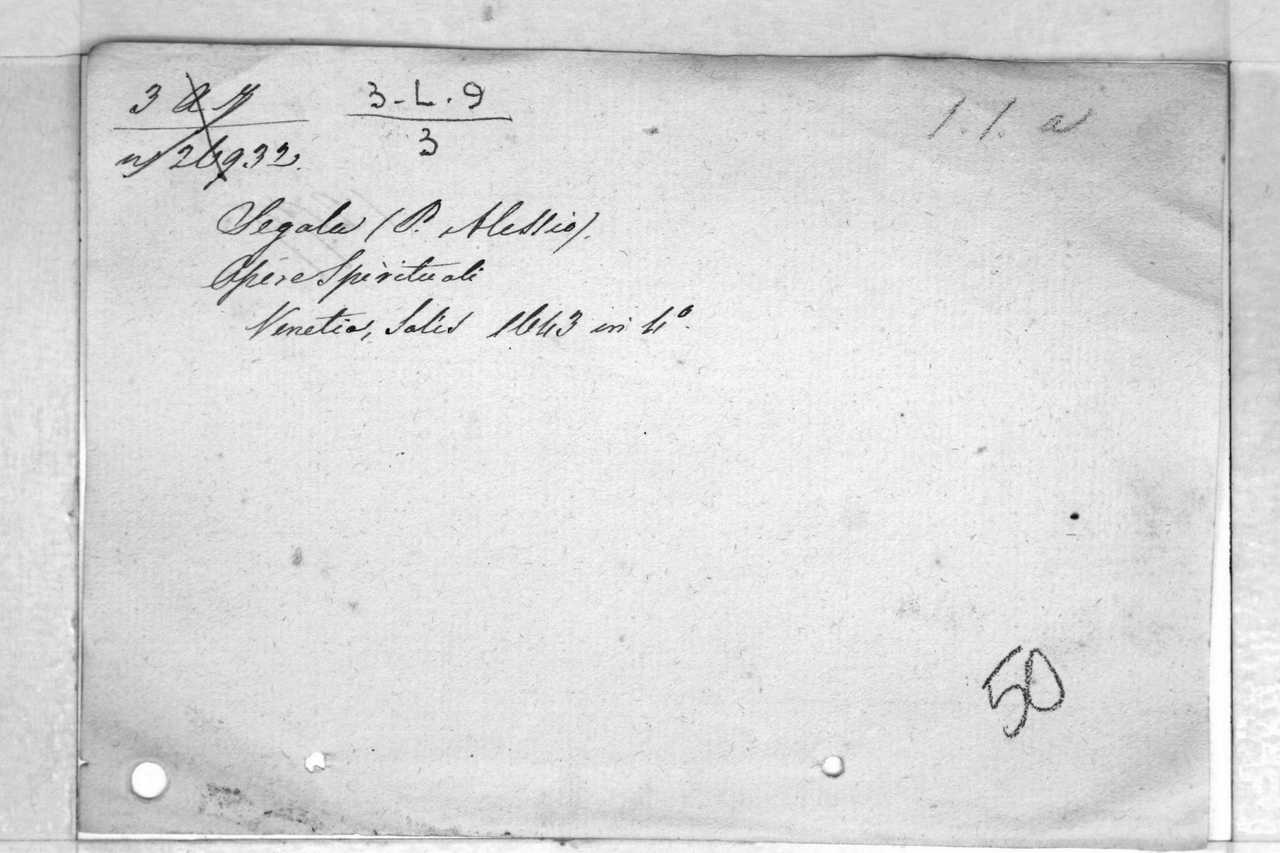 3 3-L.9 1.1. a
26932. 3
Segala (P. Alessio).
Opere Spirituali
Venetia, Salis 1643 in 4°.
50